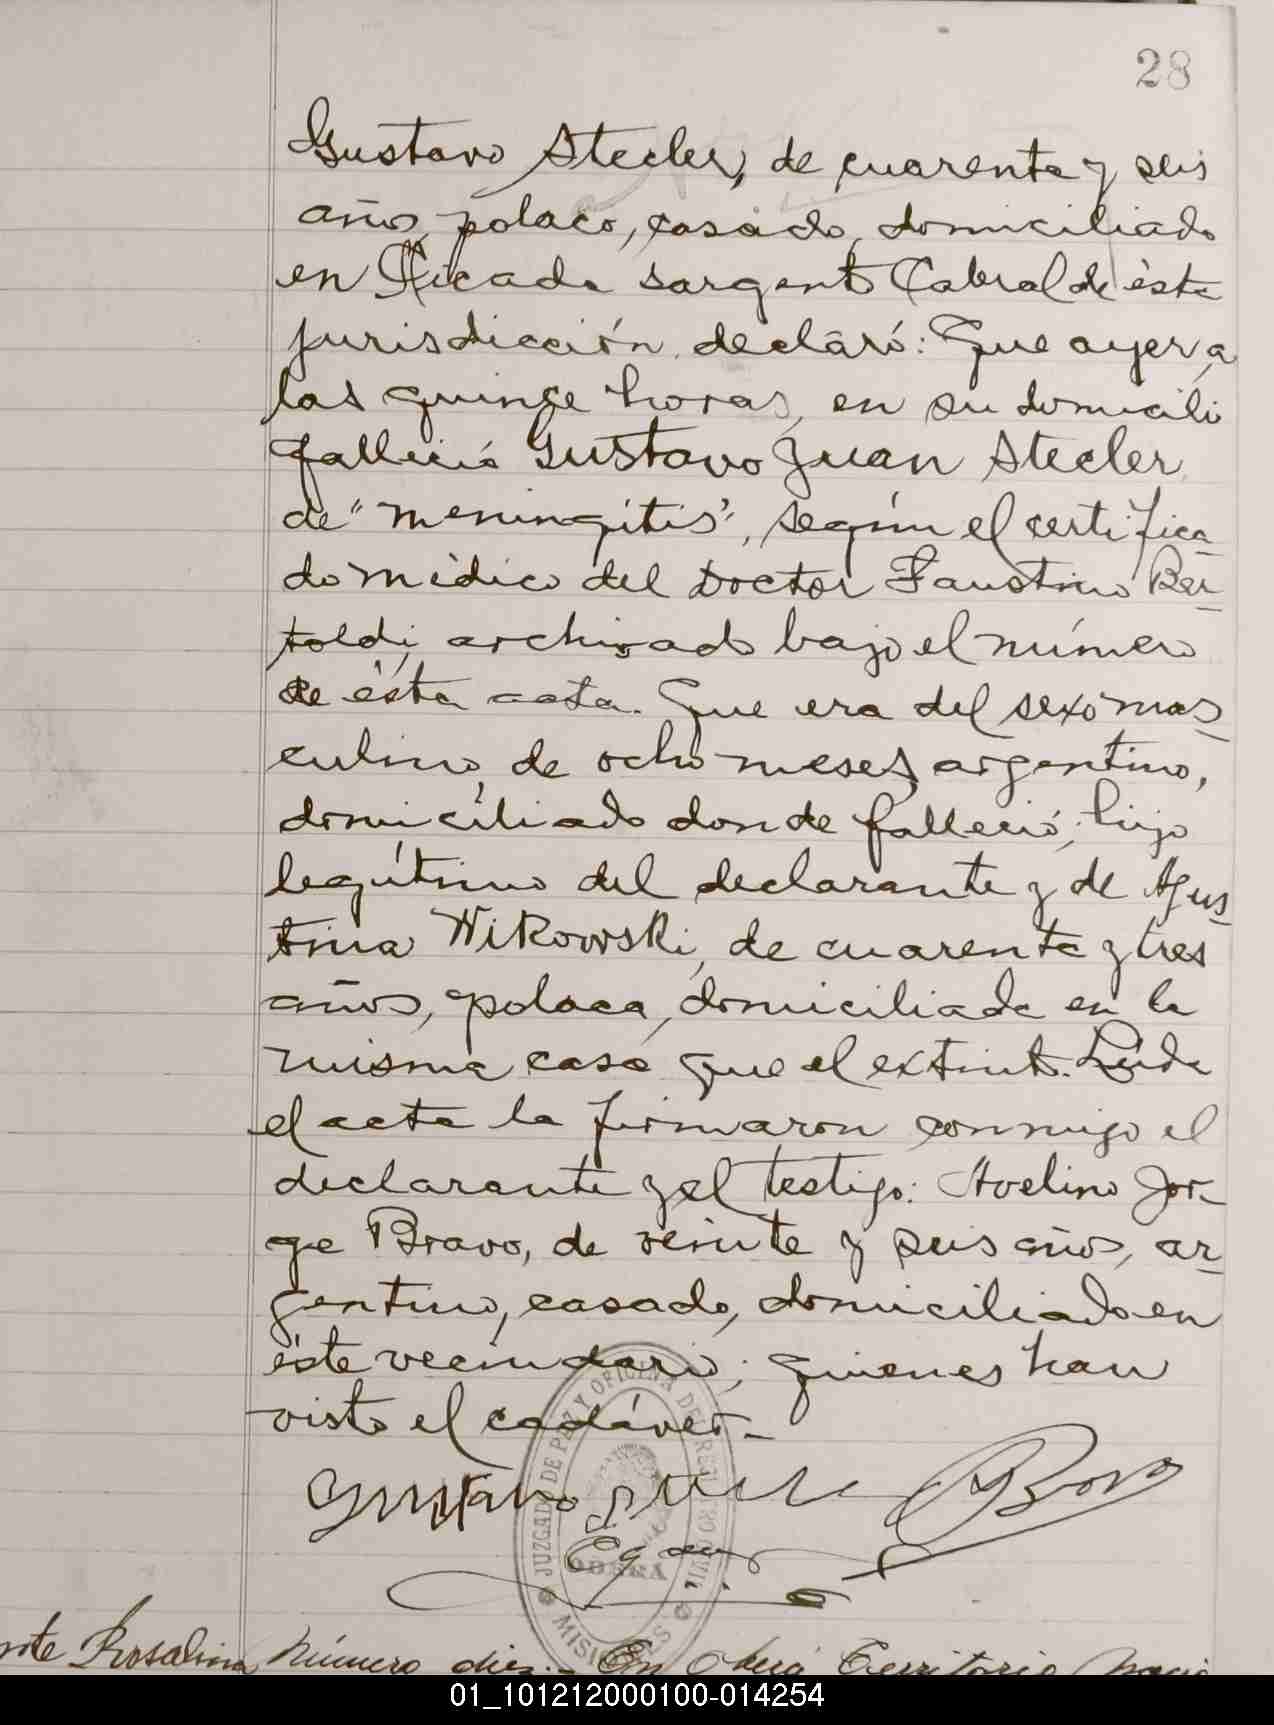 28
Gustavo Stecler, de cuarenta y seis
años, polaco, casado, domiciliado
en Picada Sargento Cabral de ésta
jurisdicción, declaró: Que ayer, a
las quince horas, en su domicilio
falleció Gustavo Juan Stecler,
de "meningitis", según el certifica-
do médico del Doctor Faustino Ber-
toldi, archivado bajo el número
de ésta acta. Que era del sexo mas-
culino, de ocho meses, argentino,
domiciliado donde falleció; hijo
legítimo del declarante y de Agus-
tina Wikowski, de cuarenta y tres
años, polaca, domiciliada en la
misma casa que el extinto. Leída
el acta la firmaron conmigo el
declarante y el testigo: Avelino Jor-
ge Bravo, de veinte y seis años, ar-
gentino, casado, domiciliado en
éste vecindario; quienes han
visto el cadáver.-
Gustavo ABravo
JUZGADO DE PAZ Y OFICINA DE REGISTRO CIVIL
OBERÁ
MISIONES
Rosalina Número diez.- En Oberá Territorio
01_101212000100-014254